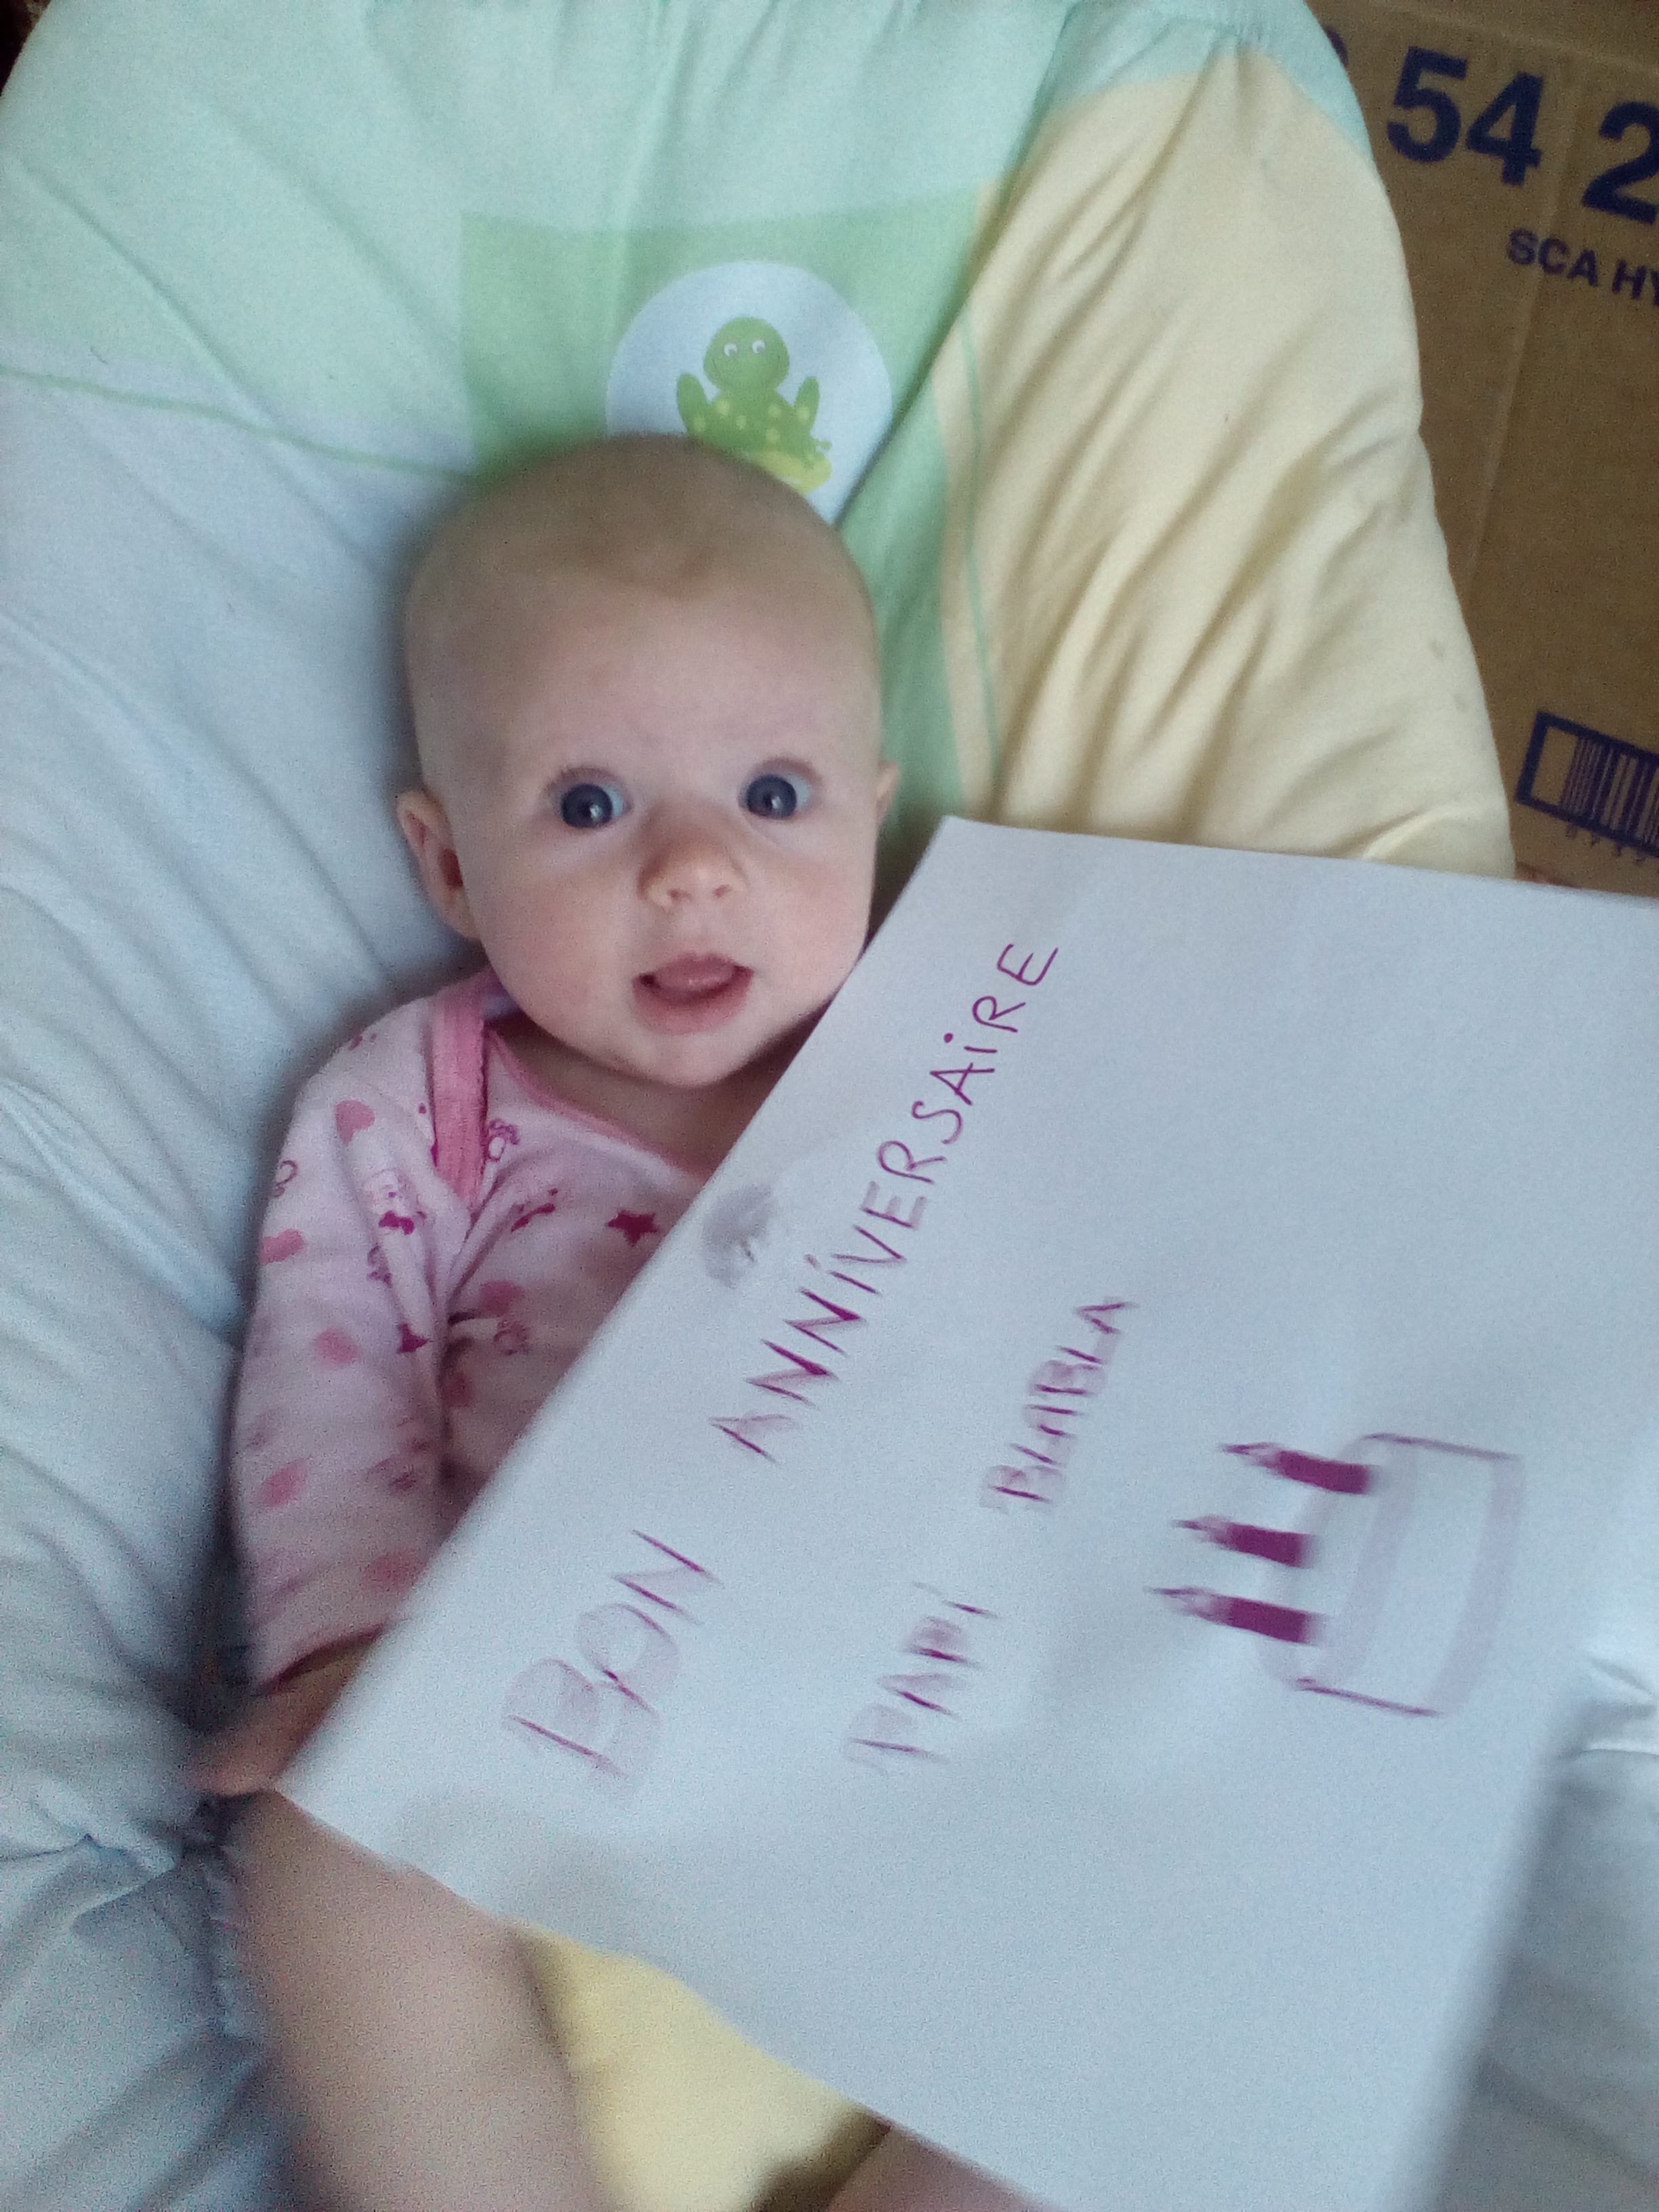 54 2
SCA HY
BON ANNiVERSAiRE
PAPi BLABLA